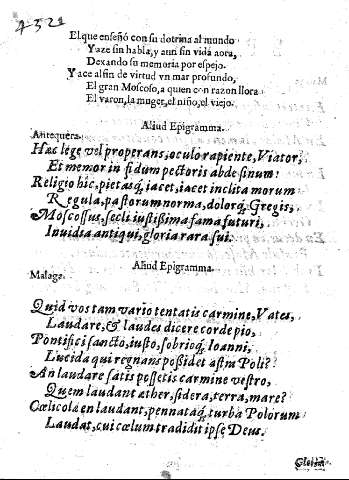 7321
El que enseñò con su dotrina al mundo
Yaze sin habla, y aun sin vida aora,
Dexando su memoria por espejo.
Yace al fin de virtud vn mar profundo,
El gran Moscoso, a quien con razon llora
El varon, la muger, el niño, el viejo.
Aliud Epigramma.
Antequera.
Hæc lege vel properans, oculo rapiente, Viator,
Et memor in fidum pectoris abde sinum:
Religio hic, pietasq́, iacet, iacet inclita morum
Regula, pastorum norma, dolorq́, Gregis,
Moscossus, secli iustissima fama futuri,
Inuidia antiqui, gloria rara sui.
Aliud Epigramma.
Malaga.
Quid vos tam vario tentatis carmine, Vates,
Laudare, & laudes dicere corde pio,
Pontifici sancto, iusto, sobrioq́, Ioanni,
Lucida qui regnans possidet astra Poli?
An laudare satis possetis carmine vestro,
Quem laudant æther, sidera, terra, mare?
Cœlicolæ en laudant, pennataq́, turba Polorum
Laudat, cui cœlum tradidit ipse Deus.